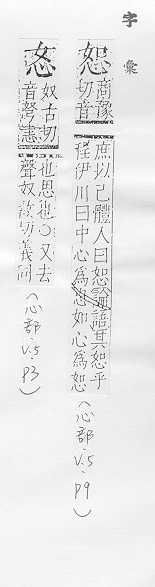 字彙
恕
商豫
切音
庶以己體人曰恕論語其恕乎
程伊川曰中心為忠如心為恕
(心部.V.5.P9)
㣽
奴古切
音弩恚
也恩也○又去
聲奴故切義同
(心部.V.5.P3)